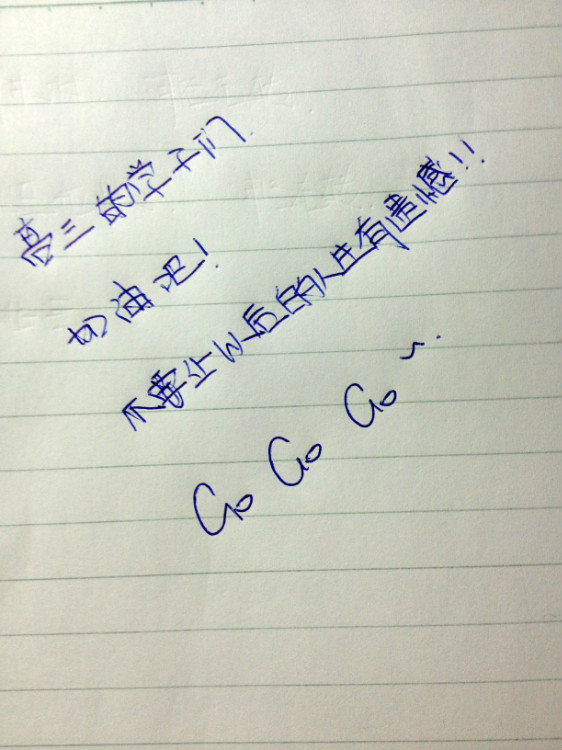 高三的学子们
加油吧!
不要让以后的人生有遗憾!!
Go Go Go ~.